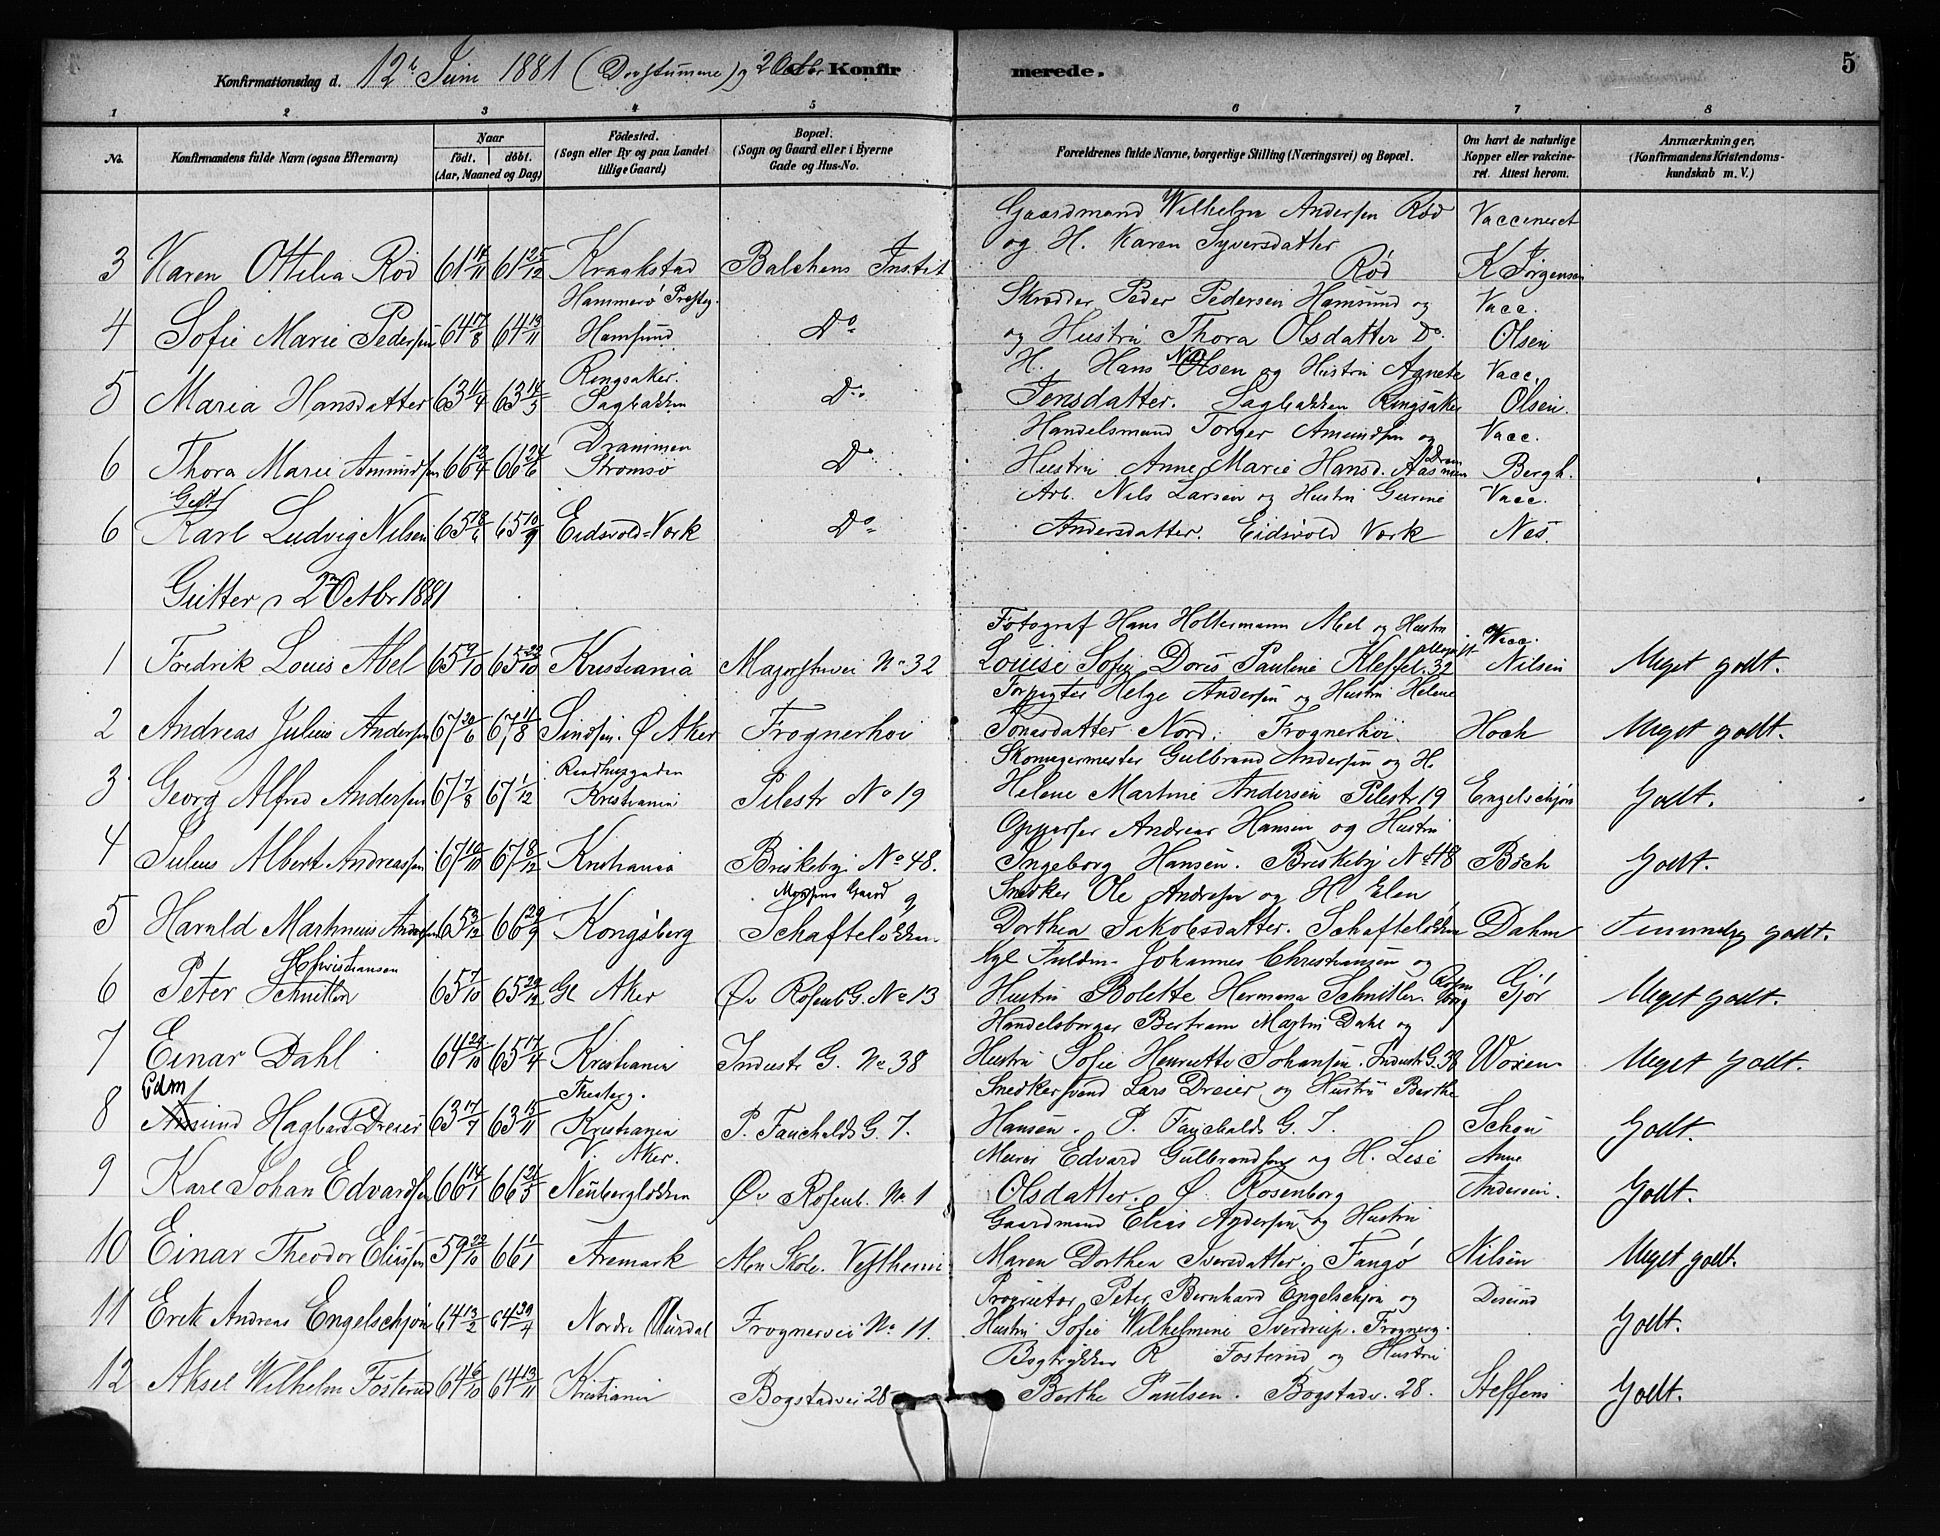 Konfirmationsdag d. 12te Juni 1881 (Døvstumme) og 2 Octbr Konfirmerede. 5
1 2 3 4 5 6 7 8
No. Konfirmandens fulde Navn (ogsaa Efternavn) Naar födt. döbt. (Aar, Maaned og Dag) Födested. (Sogn eller By og paa Landet tillige Gaard) Bopæl. (Sogn og Gaard eller i Byerne Gade og Hus-No. Forældrenes fulde Navne, borgerlige Stilling (Næringsvei) og Bopæl. Om havt de naturlige Kopper eller vakcineret. Attest herom. Anmærkninger, (Konfirmandens Kristendomskundskab m. V.)
Gaardmand Wilhelm Andersen Rød Vaccineret
og H. Karen Syversdatter
3 Karen Ottilia Rød 61 14/11 61 25/12 Kraakstad Balchens Instit Rød K Jørgensen
Hammerø Præsteg. Skrædder Peder Pedersen Hamsund og Vacc.
4 Sofie Marie Pedersen 64 17/8 64 13/11 Hamsund Do og Hustru Thora Olsdatter Do Olsen
Ringsaker. H. Hans Olsen og Hustru Agnete Vacc.
5 Maria Hansdatter 63 11/4 63 14/5 Sagbakken Do Jensdatter. Sagbakken Ringsaker Olsen.
Drammen Handelsmand Torger Amundsen og Vacc.
6 Thora Marie Amundsen 66 12/4 66 24/6 Strømsø Do Hustru Anne Marie Hansd. Aas Bergh.
Gutt Arb. Nils Larsen og Hustru Gurine Vacc.
6 Karl Ludvig Nilsen 65 65 10/9 Eidsvold=Vork Do Andersdatter. Eidsvold Vork Nes.
Gutter 2 Octbr 1881
Fotograf Hans Holtermann Abel og Hustru Vacc.
1 Fredrik Louis Abel 65 9/10 65 29/10 Kristiania Majorstuvei No 32 Louise Sofie Doris Pauline Kleffel. 32 Nilsen Meget godt.
Forpagter Helge Andersen og Hustru Helene
2 Andreas Julius Andersen 67 20/6 67 11/8 Ø Aker Frognerhøi Jonsdatter Nord. Frognerhøi. Hoch Meget godt.
Raadhusgaden Skomagermester Gulbrand Andersen og H.
3 Georg Alfred Andersen 67 7/8 67 1/12 Kristiania Pilestr No 19 Helene Martine Andersen Pilestr 19 Engelschjøn Godt.
Oppasser Andreas Hansen og Hustru
4 Julius Albert Andreassen 67 67 8/12 Kristiania Briskeby No 48. Ingeborg Hansen. Briskeby No 48 Böch Godt.
Gaard 9 Snedker Ole Andersen og H Elen
5 Harald Martineus Andersen 65 3/12 66 29/9 Kongsberg Schafteløkken. Dorthea Jakobsdatter. Schafteløkken Dahm Temmelig godt.
Christiansen Kgl Fuldm. Johannes Christiansen og
6 Peter Schnitler 65 7/10 65 29/12 Gl Aker Øv Rosenb G. No 13 Hustru Bolette Hermana Schnitler. Rosenborg Gjør Meget godt.
Handelsborger Bertram Martin Dahl og
7 Einar Dahl 64 29/10 65 17/4 Kristiania Industr G. No 38 Hustru Sofie Henriette Johansen. Industr G. 38 Woxen Meget godt.
Edm Snedkersvend Lars Dreier og Hustru Berthe
8 Hagbart Dreier 63 17/7 63 15/11 Kristiania P. Fauchalds G. 7. Hansen. P. Fauchalds G. 7. Schou Godt.
V. Aker. Murer Edvard Gulbrandsen og H. Lese Anne
9 Karl Johan Edvardsen 66 14/1 66 21/5 Neuberglökken Øv Rosenb. No 1 Olsdatter. Ø. Rosenborg Andersen. Godt.
Gaardmand Elias Andersen og Hustru
10 Einar Theodor Eliassen 59 22/10 66 1/1 Aremark Alm Skole. Vestheim Maren Dorthea Iversdatter, Tangø Nilsen Meget godt.
Proprietor Peter Bernhard Engelschjøn og
11 Erik Andreas Engelschjøn 64 13/2 64 29/4 Nordre Aurdal Frognervei No 11. Hustru Sofie Wilhelmine Sverdrup. Frognerg. Godt.
Bogtrykker R Fosterud og Hustru
12 Aksel Wilhelm Fosterud 64 6/10 64 13/11 Kristiania Bogstadvei 28 Berthe Paulsen. Bogstadv. 28. Steffens Godt.